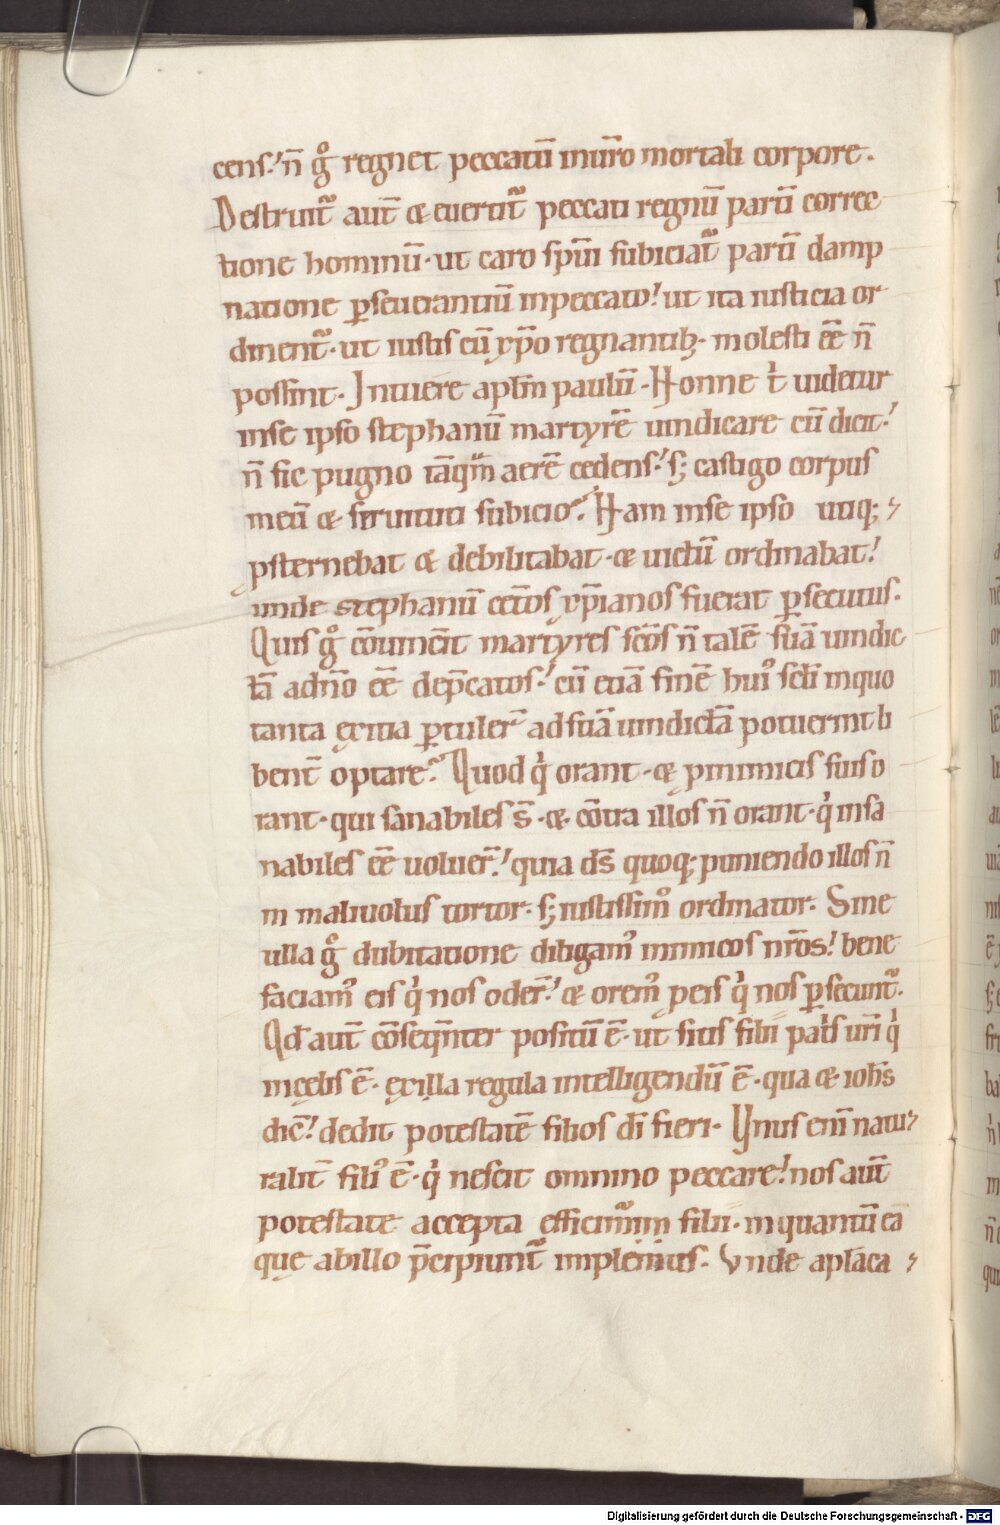 cens! n̄ gͦ regnet peccatū inur̄o mortali corpore.
Destruit᷑ aut̄ & euertit᷑ peccati regnū parti᷑ correc
tione hominū· ut caro spūi subiciat᷑ parti᷑ damp
natione ꝑseuerantiū inpeccato! ut ita iusticia or
dinent᷑· ut iustis cū xp̄o regnantibꝫ· molesti eē n̄
possint· Intuere apłm paulū· Nonne t̓ uidetur
inse ipso stephanū martyrē uindicare cū dicit!
n̄ sic pugno tāqm̄ aerē cedens! sꝫ castigo corpus
meū & seruituti subicio? Nam inse ipso utiqꝫ
ꝓsternebat & debilitabat· & uictū ordinabat!
unde stephanū cet̄os xp̄ianos fuerat ꝑsecutus.
Quis gͦ cōuincit martyres sc̄os n̄ talē suā uindic
tā adn̄o eē dep̄catos! cū etiā finē huiꝰ sc̄li inquo
tanta exitia ꝑtuler̄ ad suā uindictā potuerint li
bent̄ optare? Quod q̓ orant· & ꝓinimicis suis o
rant· qui sanabiles s̄· & cōtra illos n̄ orant· q̓ insa
nabiles eē uoluer̄! quia ds̄ quoqꝫ puniendo illos n̄
ē maliuolus tortor· sꝫ iustissimꝰ ordinator. Sine
ulla gͦ dubitatione diligamꝰ inimicos nr̄os! bene
faciamꝰ eis q̓ nos oder̄! & oremꝰ ꝓeis q̓ nos ꝑsecunt᷑.
Qd̄ aut̄ cōseqn̄ter positū ē· ut sitis filii pat̓s ur̄i q̓
incęlis ē· exilla regula intelligendū ē· qua & ioh̄s
dic̄! dedit potestatē filios dī fieri· Vnus eni᷑ natu
ralit̄ filiꝰ ē· q̓ nescit omnino peccare! nos aut̄
potestate accepta efficimur filii· inquantū ea
que abillo p̄cipiunt᷑ implemus. Vnde apłica
Digitalisierung gefördert durch die Deutsche Forschungsgemeinschaft - DFG